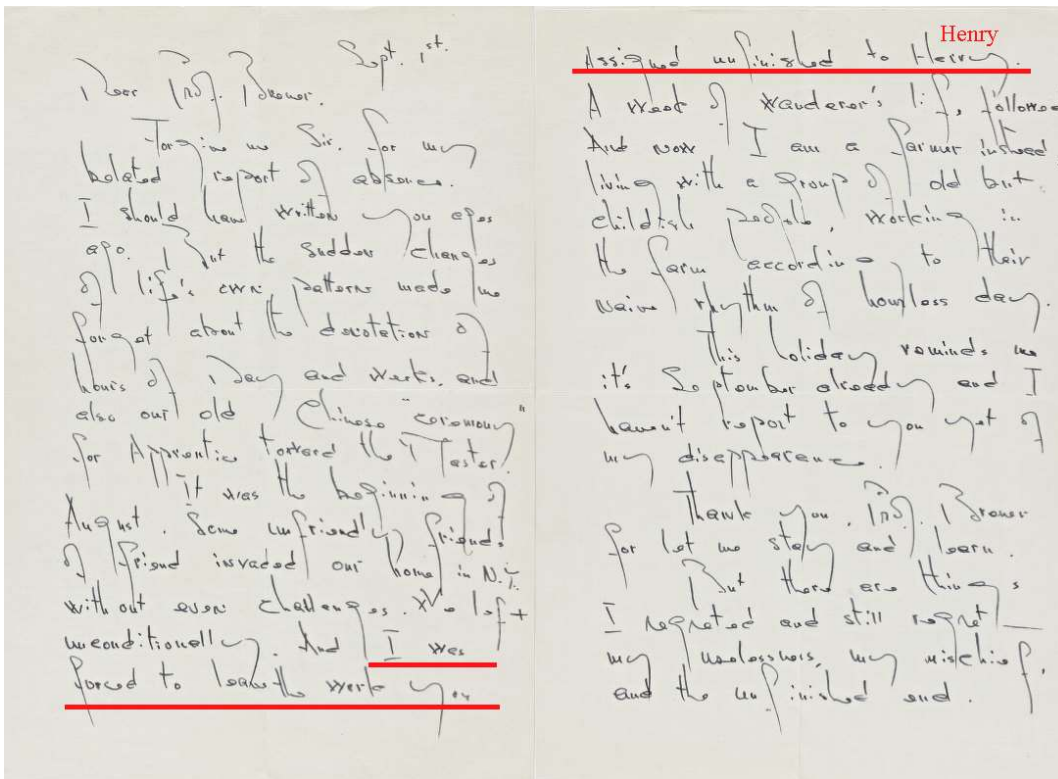 Sept. 1st.
Dear Prof. Breuer.
Forgive me Sir. for my
belated report of absence.
I should have written you ages
ago. But the sudden changes
of life's own pattern made me
forget about the denotation of
hours of Day and weeks. and
also our old Chinese "ceremony"
for Apprentice toward the Master.
It was the beginning of
August. Some unfriendly friends
of friend invaded our home in N.Y.
without even challenges. We left
unconditionally. And I was
forced to leave the work you
Henry
Assigned unfinished to Henry.
A week of wanderer's life, followed
And now I am a farmer instead
living with a group of old but
childish people, working in
the farm according to their
naive rhythm of hourless day.
This holiday reminds me
it's September already and I
haven't report to you yet of
my disappearance.
Thank you. Prof. Breuer
for let me stay and learn.
But there are things
I regreted and still regret —
my uselessness, my mischief,
and the unfinished end.